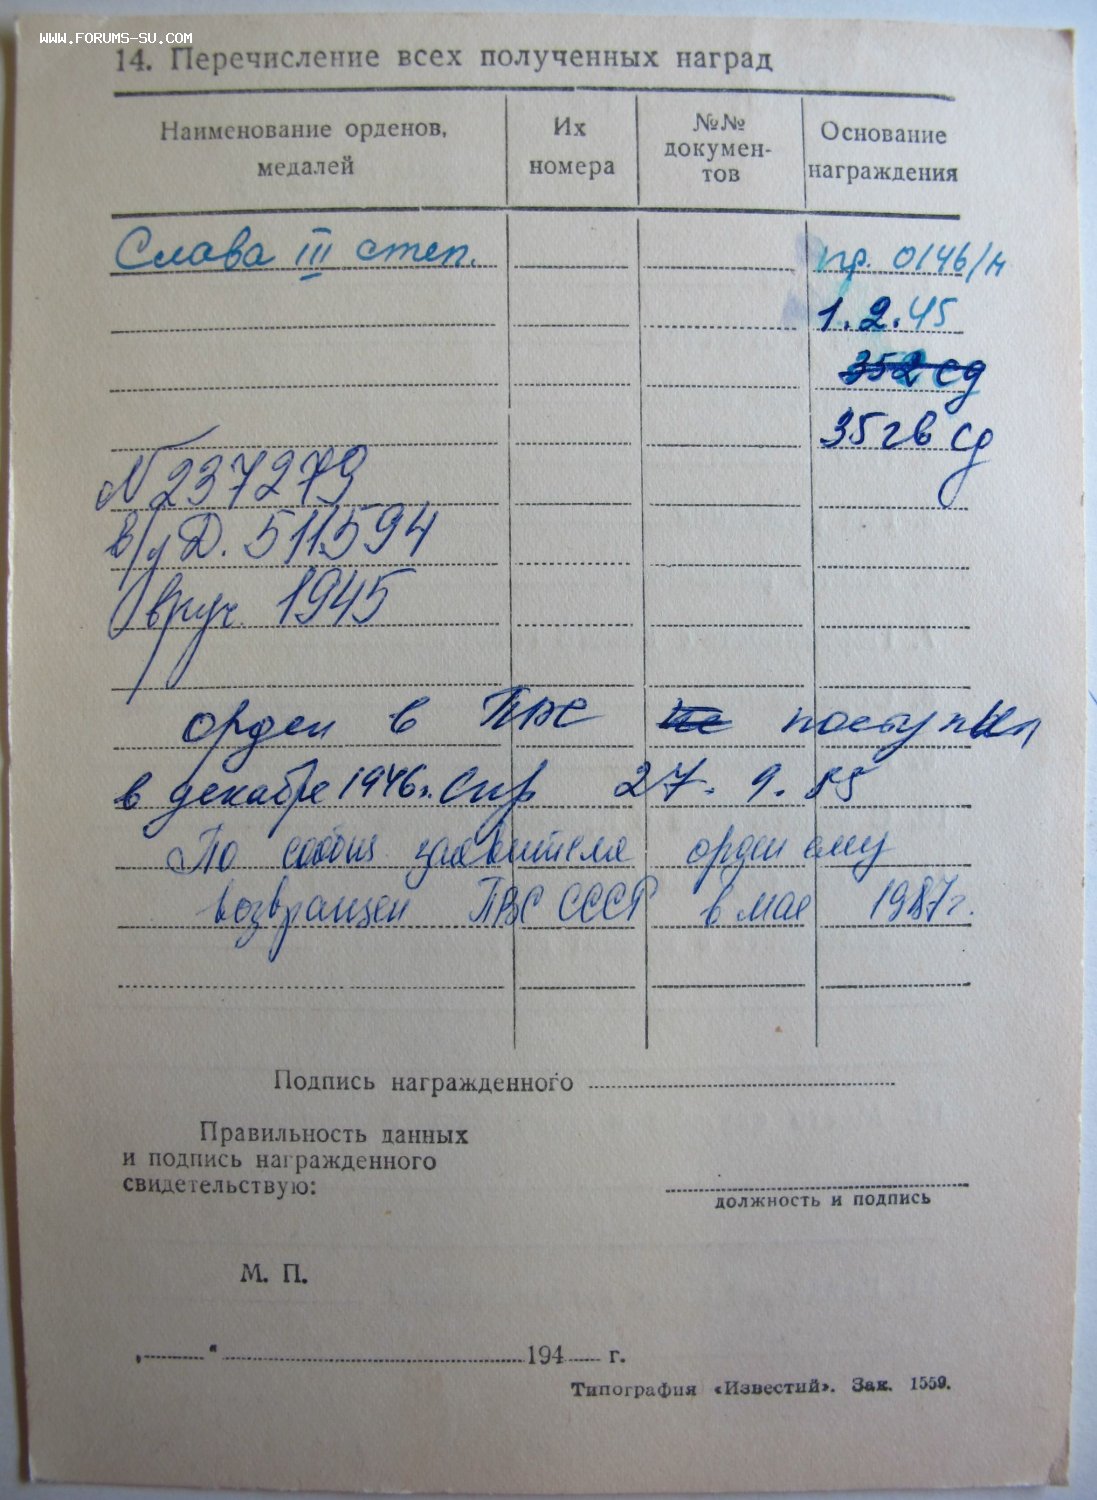 WWW.FORUMS-SU.COM
14. Перечисление всех полученных наград
Наименование орденов, медалей
Их номера
№№ докумен-тов
Основание награждения
Слава III степ. пр. 0146/н
1.2.45
352 сд
35 гв сд
N 237279
в/л Д. 511594
вруч. 1945
орден в ПВС не поступил
в декабре 1946г. Спр 27. 9. 85
По сообщ заявителя орден ему
возвращен ПВС СССР в мае 1987г.
Подпись награжденного
Правильность данных
и подпись награжденного
свидетельствую:
должность и подпись
М. П.
„ “ 194 г.
Типография «Известий». Зак. 1559.